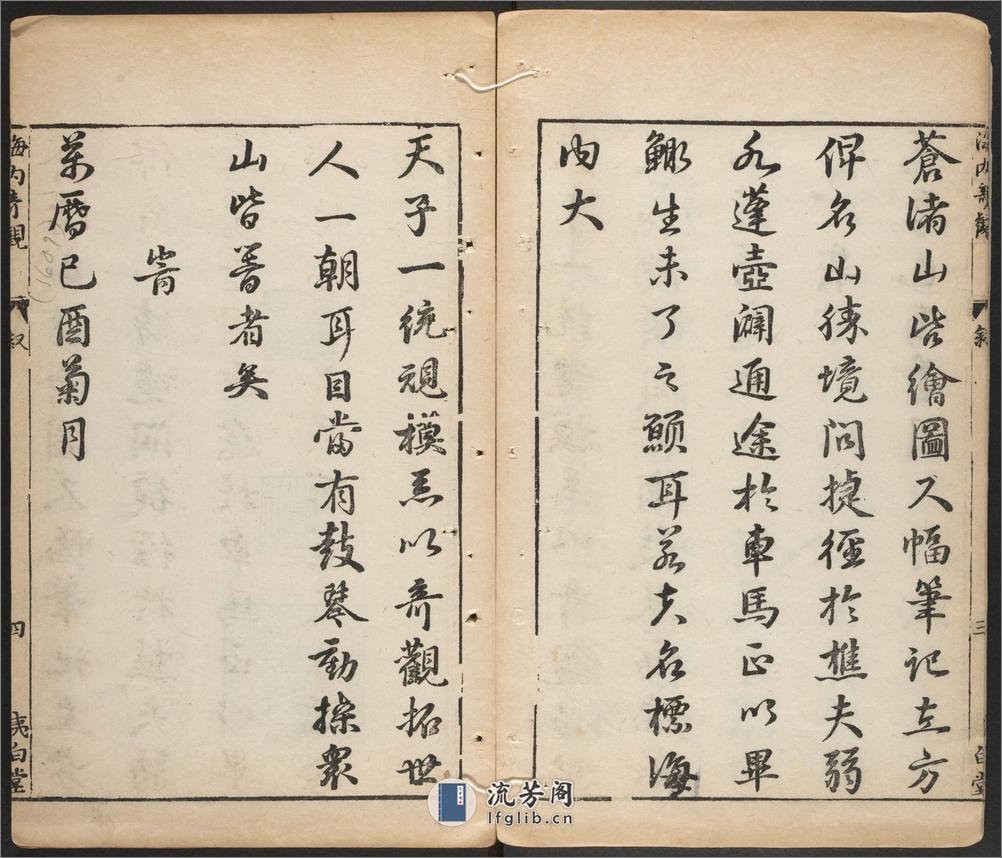 蒼渚山皆繪圖又幅筆記立方
俾名山勝境問捷徑於樵夫弱
水蓬壺闢通途於車馬正以畢
鯫生未了之願耳若夫名標海
內大
天子一統規模悉以奇觀拓世
人一朝耳目當有鼓琴動操眾
山皆響者矣
旹
萬曆己酉菊月
海內奇觀 叙 三 白堂
海內奇觀 叙 四 夷白堂
(1609)
流芳阁
lfglib.cn